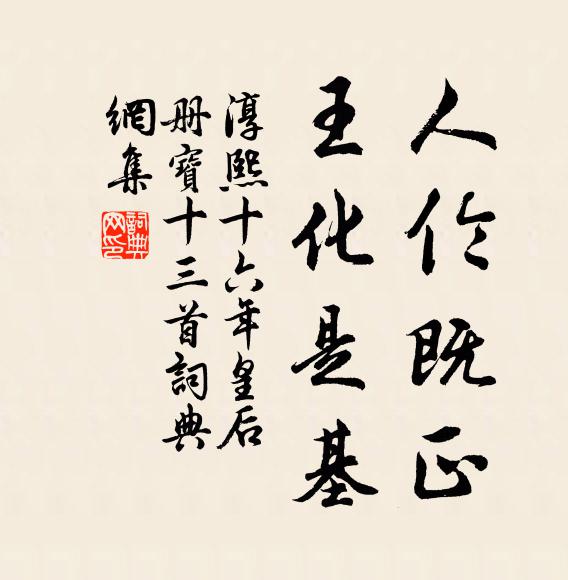 人伦既正
王化是基
淳熙十六年皇后
册寶十三首詞典
網集
詞典網印